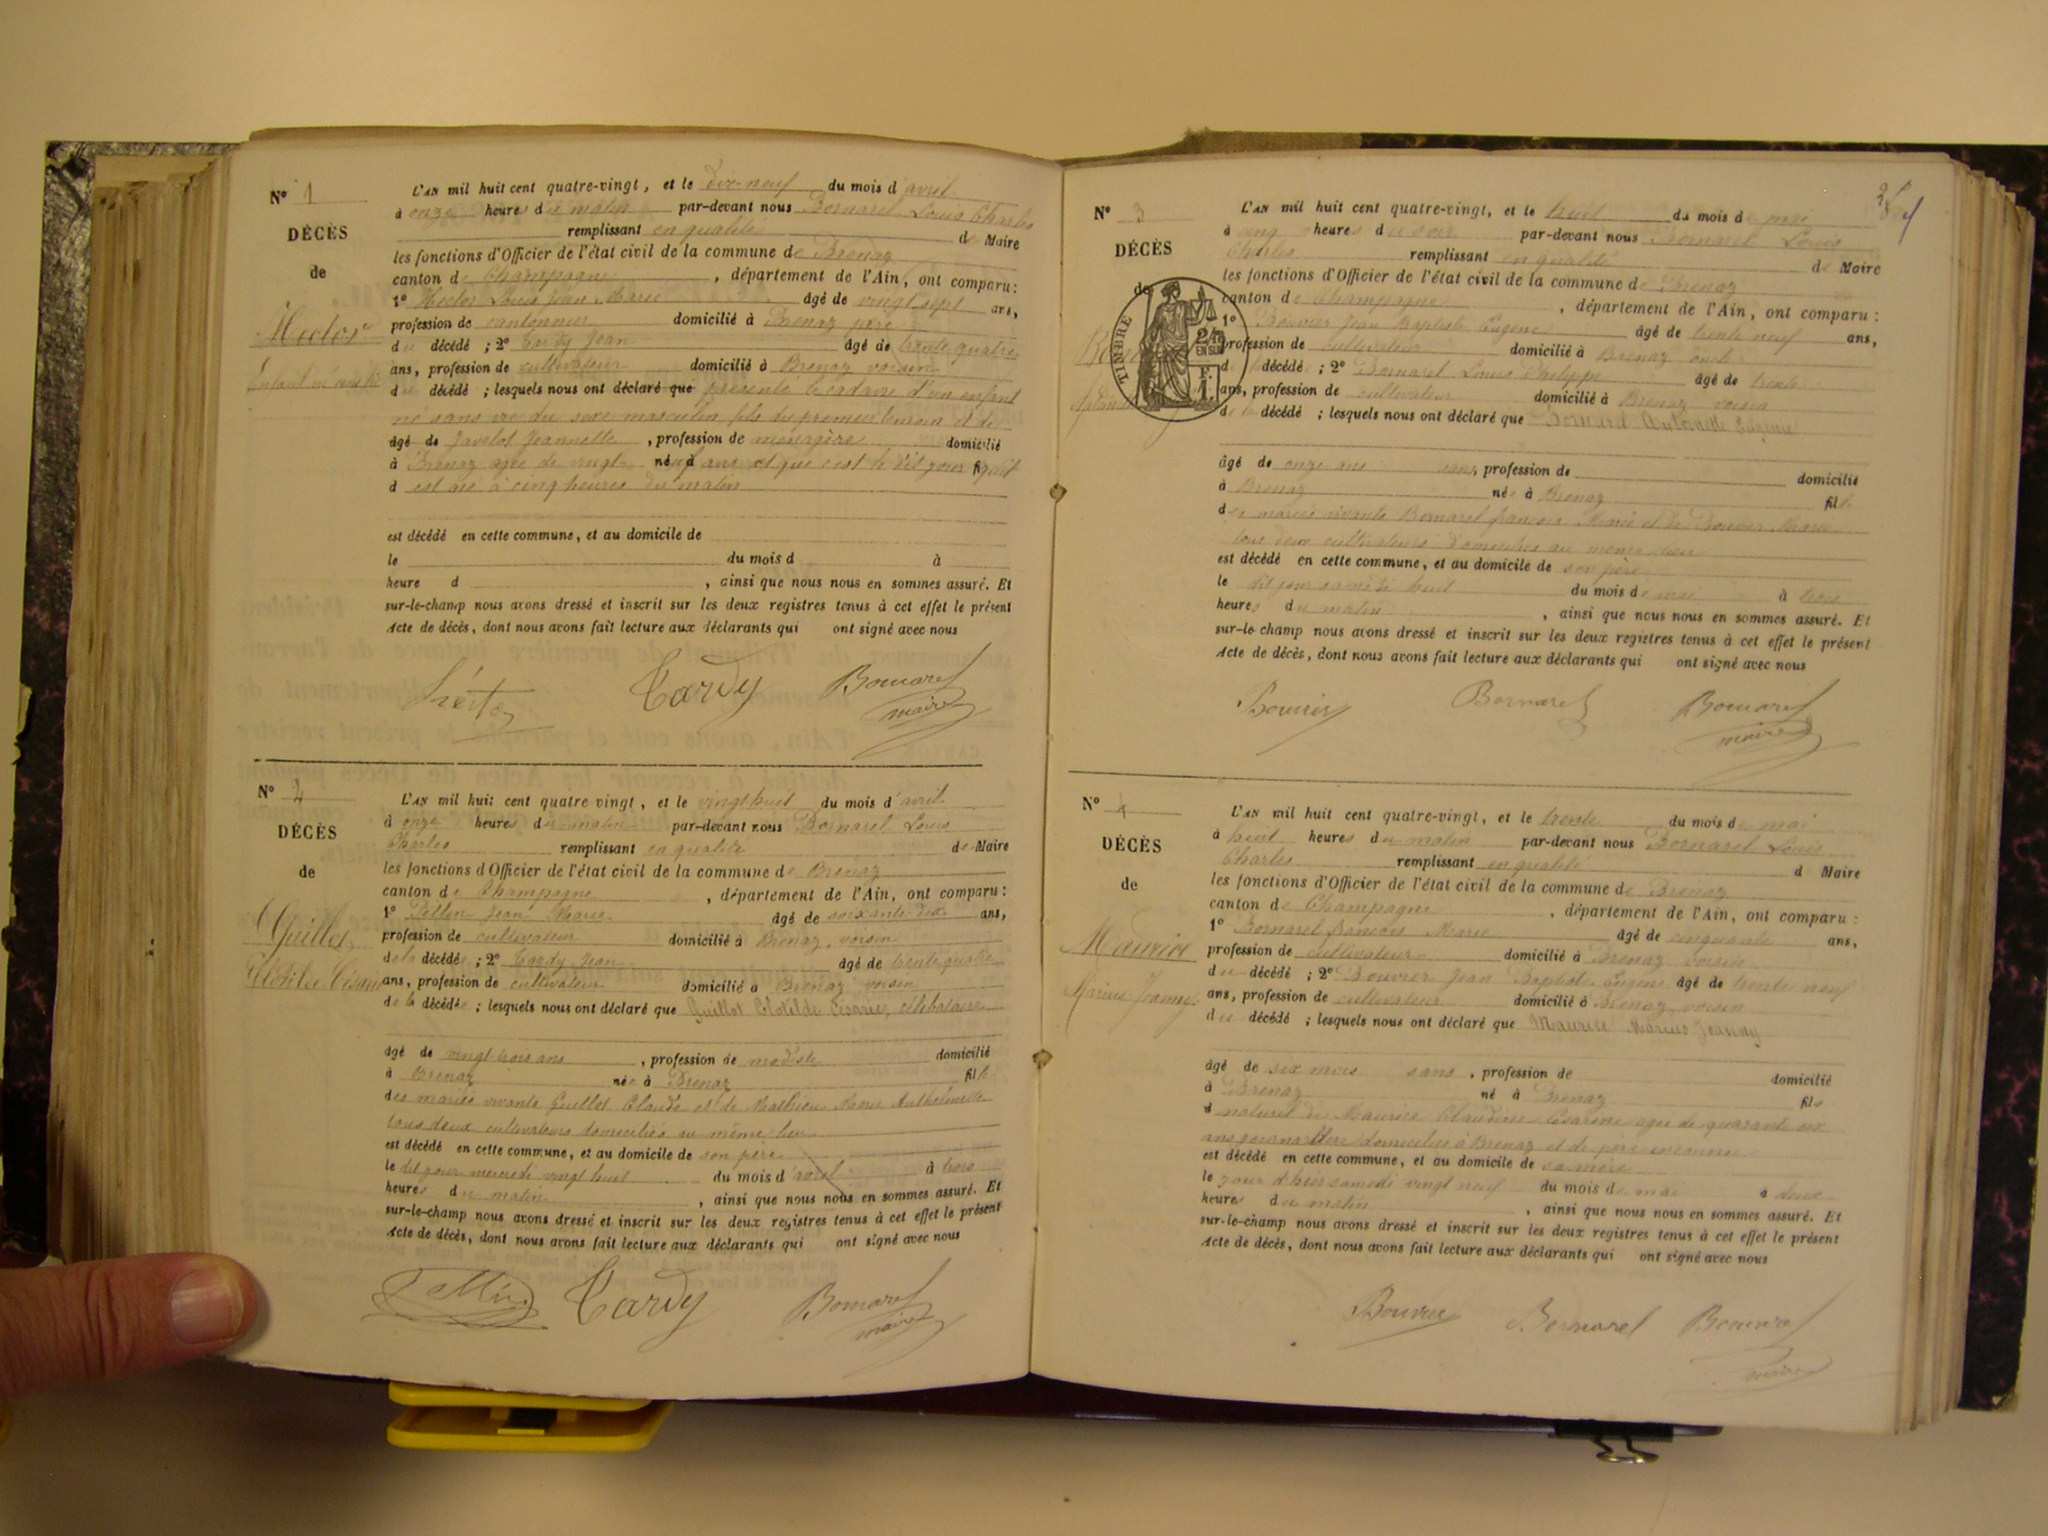 N° 1
DÉCÈS
de
Hector
L'AN mil huit cent quatre-vingt, et le dix-neuf du mois d'avril
à onze heures du matin par-devant nous Bornarel Louis Charles
remplissant en qualité de Maire
les fonctions d'Officier de l'état civil de la commune de Brenaz
canton de Champagne, département de l'Ain, ont comparu :
1° Hector Louis Jean Marie âgé de vingt sept ans,
profession de cantonnier domicilié à Brenaz père
du décédé ; 2° Tardy Jean âgé de trente quatre
ans, profession de cultivateur domicilié à Brenaz voisin
du décédé ; lesquels nous ont déclaré que présenté le cadavre d'un enfant
né sans vie du sexe masculin, fils du premier témoin et de
âgé de Javelot Jeannette, profession de ménagère domicilié
à Brenaz agée de vingt neuf ans et que c'est le dit jour
d est né à cinq heures du matin
est décédé en cette commune, et au domicile de
le du mois d à
heure d , ainsi que nous nous en sommes assuré. Et
sur-le-champ nous avons dressé et inscrit sur les deux registres tenus à cet effet le présent
Acte de décès, dont nous avons fait lecture aux déclarants qui ont signé avec nous
Hector Tardy Bornarel
maire
N° 2
DÉCÈS
de
Guillot
Clotilde Césarie
L'AN mil huit cent quatre vingt, et le vingt huit du mois d'avril
à onze heures du matin par-devant nous Bornarel Louis
Charles remplissant en qualité de Maire
les fonctions d'Officier de l'état civil de la commune de Brenaz
canton de Champagne, département de l'Ain, ont comparu :
1° Jean Marie âgé de soixante dix ans,
profession de cultivateur domicilié à Brenaz, voisin
de la décédée ; 2° Tardy Jean âgé de trente quatre
ans, profession de cultivateur domicilié à Brenaz voisin
de la décédée ; lesquels nous ont déclaré que Guillot Clotilde Césarie, célibataire
âgé de vingt trois ans, profession de modiste domicilié
à Brenaz née à Brenaz fille
des mariés vivants Guillot Claude et de Mathieu Marie Anthelmette
tous deux cultivateurs domiciliés au même lieu
est décédé en cette commune, et au domicile de son père
le dit jour mercredi vingt huit du mois d'avril à trois
heures du matin, ainsi que nous nous en sommes assuré. Et
sur-le-champ nous avons dressé et inscrit sur les deux registres tenus à cet effet le présent
Acte de décès, dont nous avons fait lecture aux déclarants qui ont signé avec nous
Tardy Bornarel
maire
N° 3
DÉCÈS
de
TIMBRE
EN SUS
F.
1.
L'AN mil huit cent quatre-vingt, et le huit du mois de mai
à cinq heures du soir par-devant nous Bornarel Louis
Charles remplissant en qualité de Maire
les fonctions d'Officier de l'état civil de la commune de Brenaz
canton de Champagne, département de l'Ain, ont comparu :
1° Bouvier Jean Baptiste Eugène âgé de trente neuf ans,
profession de cultivateur domicilié à Brenaz oncle
d décédé ; 2° Bornarel Louis Philippe âgé de trente
ans, profession de cultivateur domicilié à Brenaz voisin
de la décédé ; lesquels nous ont déclaré que Bornarel Antoinette
âgé de onze ans sans, profession de domicilié
à Brenaz née à Brenaz fille
des mariés vivants Bornarel François Marie et de Bouvier Marie
tous deux cultivateurs domiciliés au même lieu
est décédé en cette commune, et au domicile de son père
le dit jour samedi huit du mois de mai à trois
heures du matin, ainsi que nous nous en sommes assuré. Et
sur-le champ nous avons dressé et inscrit sur les deux registres tenus à cet effet le présent
Acte de décès, dont nous avons fait lecture aux déclarants qui ont signé avec nous
Bouvier Bornarel Bornarel
maire
N° 4
DÉCÈS
de
Maurice
Marius Jeanny
L'AN mil huit cent quatre-vingt, et le trente du mois de mai
à huit heures du matin par-devant nous Bornarel Louis
Charles remplissant en qualité d Maire
les fonctions d'Officier de l'état civil de la commune de Brenaz
canton de Champagne, département de l'Ain, ont comparu :
1° Bornarel François Marie âgé de cinquante ans,
profession de cultivateur domicilié à Brenaz voisin
du décédé ; 2° Bouvier Jean Baptiste Eugène âgé de trente neuf
ans, profession de cultivateur domicilié à Brenaz voisin
du décédé ; lesquels nous ont déclaré que Maurice Marius Jeanny
âgé de six mois sans, profession de domicilié
à Brenaz né à Brenaz fils
naturel de Maurice Claudine Césarine agée de quarante six
ans journalière domiciliée à Brenaz et de père inconnu
est décédé en cette commune, et au domicile de sa mère
le jour d'hier samedi vingt neuf du mois de mai à deux
heures du matin, ainsi que nous nous en sommes assuré. Et
sur-le-champ nous avons dressé et inscrit sur les deux registres tenus à cet effet le présent
Acte de décès, dont nous avons fait lecture aux déclarants qui ont signé avec nous
Bouvier Bornarel Bornarel
maire